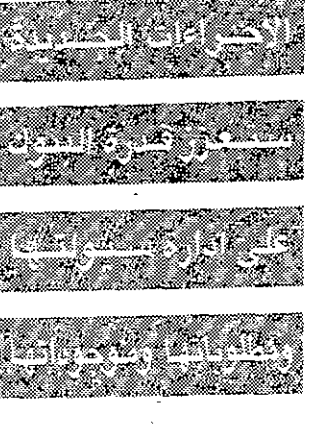 الاجراءات الجديدة
ستعزز قدرة البنوك
على ادارة سيولتها
ومطلوباتها وموجوداتها